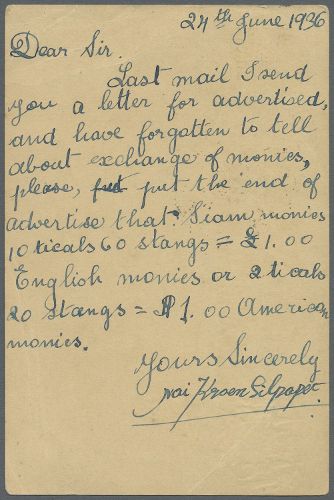 24th June 1936
Dear Sir.
Last mail I send
you a letter for advertised,
and have forgotten to tell
about exchange of monies,
please, put put the end of
advertise that: Siam monies
10 ticals 60 stangs = £1.00
English monies or 2 ticals
20 stangs = $1.00 American
monies.
Yours Sincerely
nai